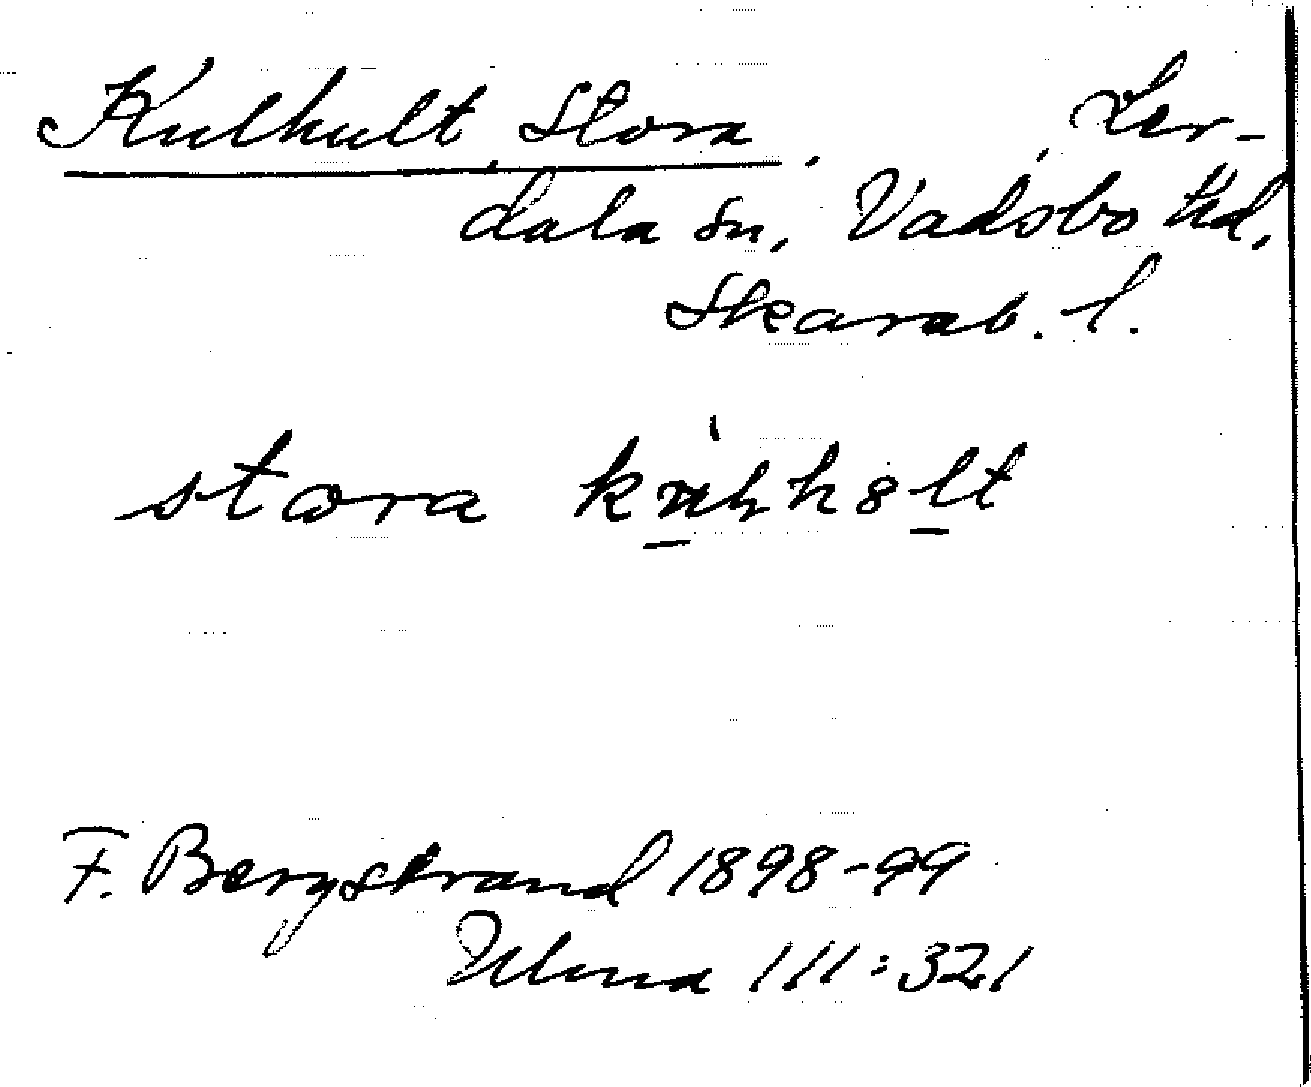 Kulhult, Stora. Ler-
dala sn, Vadsbo hd,
Skarab. l.
stora
F. Bergstrand 1898-99
Ulma 111:321